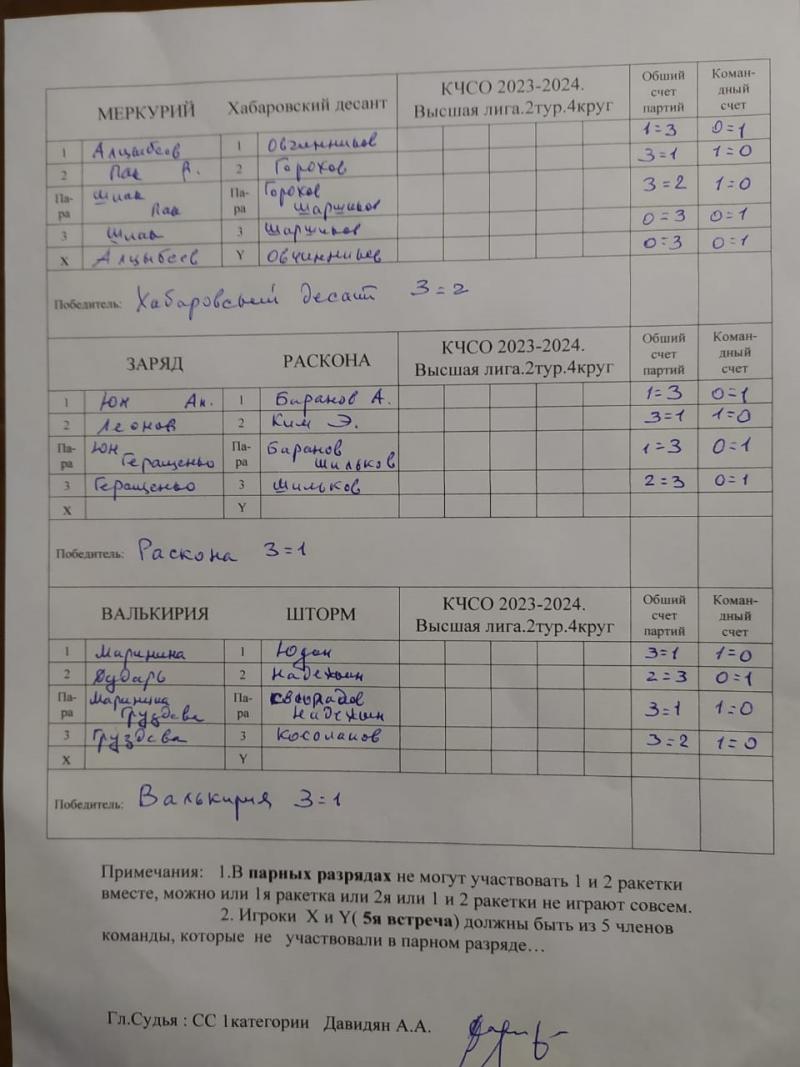 МЕРКУРИЙ Хабаровский десант КЧСО 2023-2024. Высшая лига.2тур.4круг Обший счет партий Коман-дный счет
1 Алцыбеев 1 Овчинников 1=3 0=1
2 Пак Р. 2 Горохов 3=1 1=0
Па-ра Шпак Пак Па-ра Горохов Шаршиков 3=2 1=0
3 Шпак 3 Шаршиков 0=3 0=1
X Алцыбеев Y Овчинников 0=3 0=1
Победитель: Хабаровский десант 3=2
ЗАРЯД РАСКОНА КЧСО 2023-2024. Высшая лига.2тур.4круг Обший счет партий Коман-дный счет
1 Юн Ан. 1 Баранов А. 1=3 0=1
2 Леонов 2 Ким Э. 3=1 1=0
Па-ра Юн Геращенко Па-ра Баранов Шильков 1=3 0=1
3 Геращенко 3 Шильков 2=3 0=1
X Y
Победитель: Раскона 3=1
ВАЛЬКИРИЯ ШТОРМ КЧСО 2023-2024. Высшая лига.2тур.4круг Обший счет партий Коман-дный счет
1 Маринина 1 Юдан 3=1 1=0
2 Дударь 2 Надежин 2=3 0=1
Па-ра Маринина Груздева Па-ра Надежин 3=1 1=0
3 Груздева 3 Косолапов 3=2 1=0
X Y
Победитель: Валькирия 3=1
Примечания: 1.В парных разрядах не могут участвовать 1 и 2 ракетки
вместе, можно или 1я ракетка или 2я или 1 и 2 ракетки не играют совсем.
2. Игроки X и Y( 5я встреча) должны быть из 5 членов
команды, которые не участвовали в парном разряде…
Гл.Судья : СС 1категории Давидян А.А.